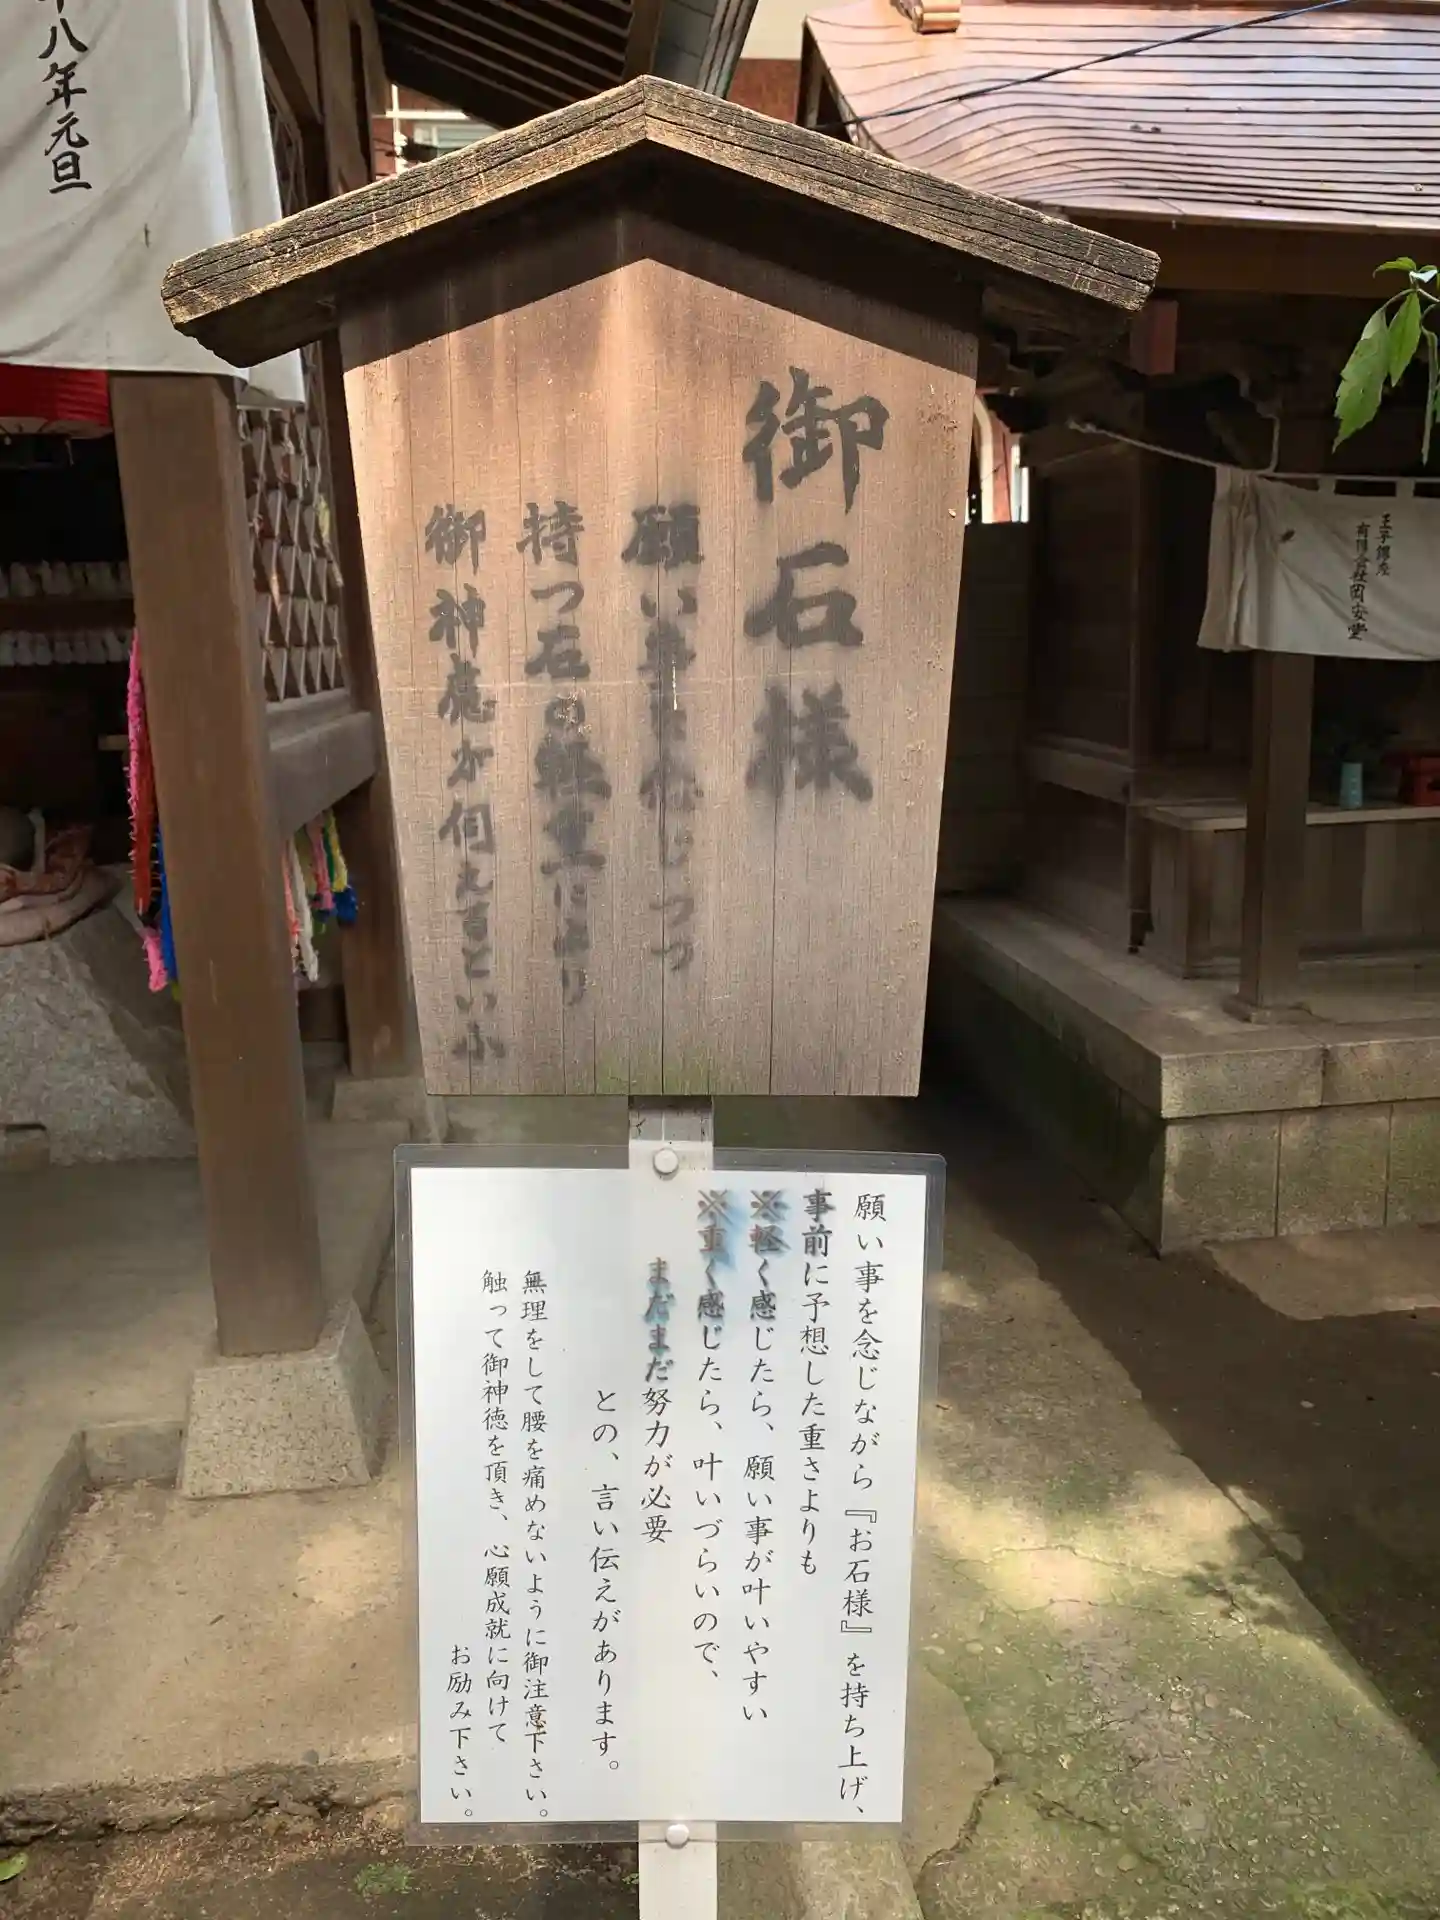 御石様
願い事を念じつつ
持つ石の軽重により
御神慮が伺えるといふ
願い事を念じながら『お石様』を持ち上げ、
事前に予想した重さよりも
※軽く感じたら、願い事が叶いやすい
※重く感じたら、叶いづらいので、
まだまだ努力が必要
との、言い伝えがあります。
無理をして腰を痛めないように御注意下さい。
触って御神徳を頂き、心願成就に向けて
お励み下さい。
八年元旦
有限会社岡安堂